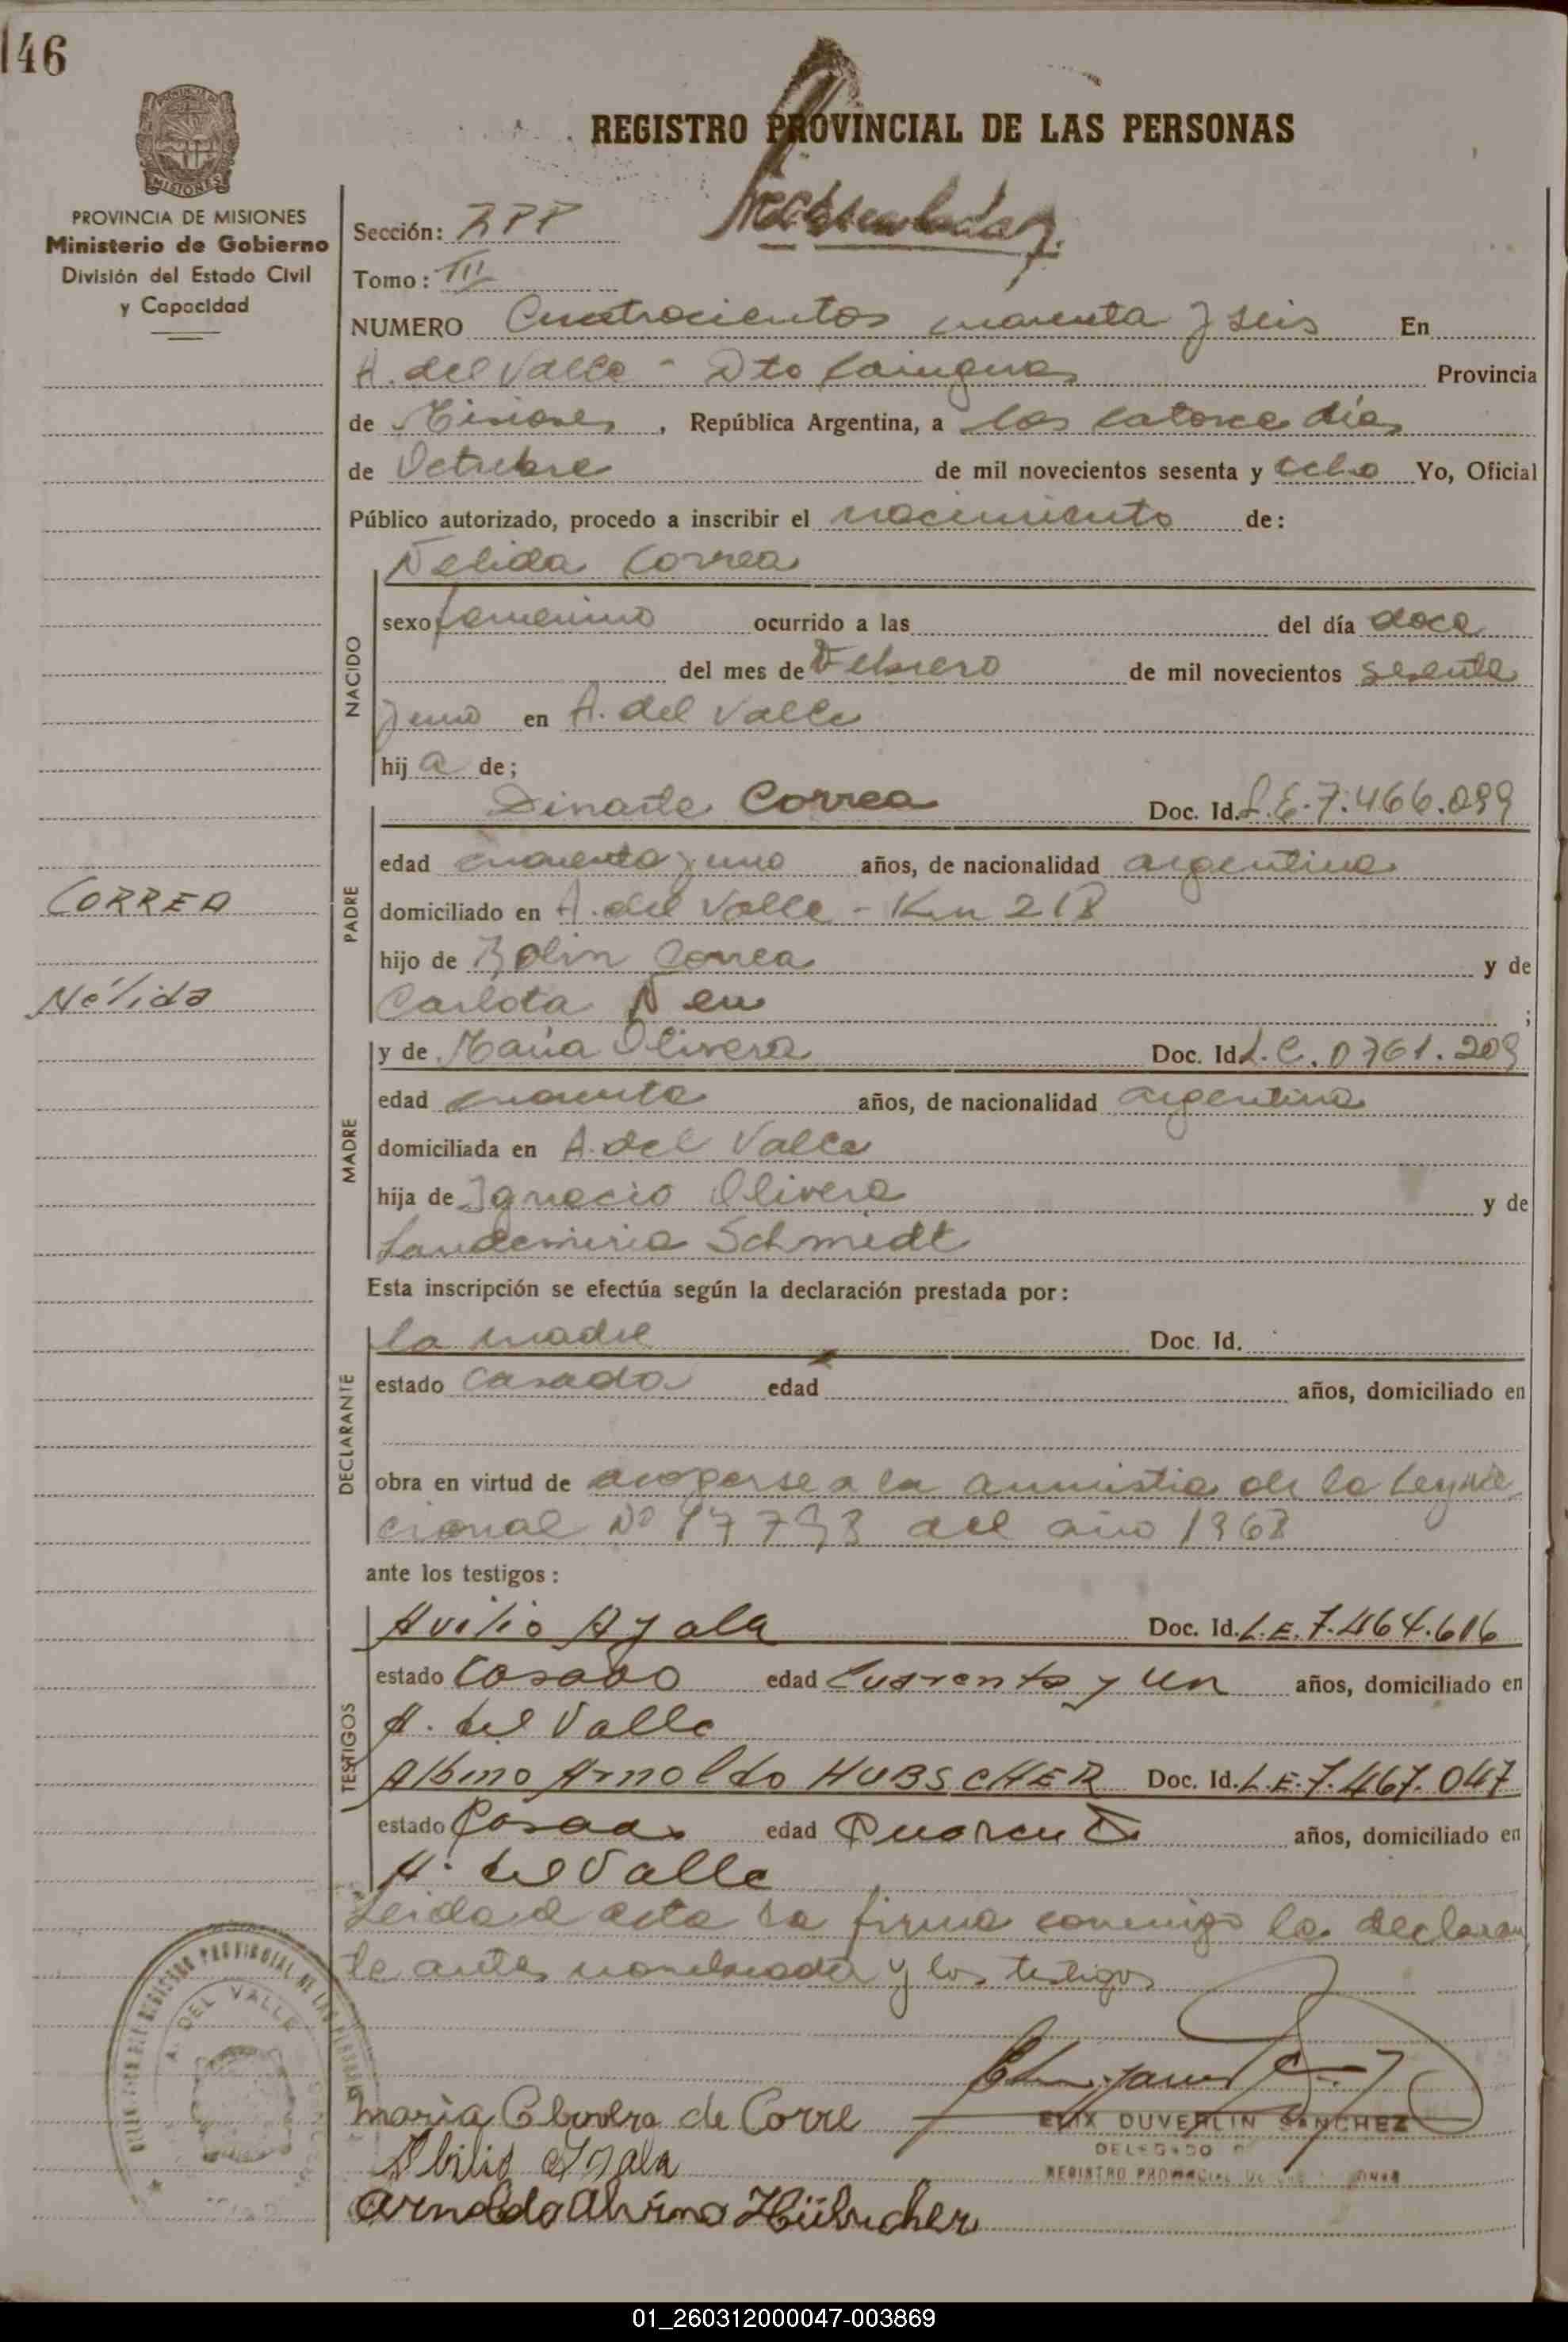 146
REGISTRO PROVINCIAL DE LAS PERSONAS
PROVINCIA DE MISIONES
Ministerio de Gobierno
División del Estado Civil
y Capacidad
Sección:
Tomo: III
NUMERO Cuatrocientos cuarenta y seis En
A. del Valle - Dto Cainguas Provincia
de Misiones, República Argentina, a los catorce días
de Octubre de mil novecientos sesenta y ocho Yo, Oficial
Público autorizado, procedo a inscribir el nacimiento de:
NACIDO
Nelida Correa
sexo femenino ocurrido a las del día doce
del mes de Febrero de mil novecientos sesenta
y uno en A. del Valle
hij a de;
PADRE
Dinarte Correa Doc. Id. L.E. 7.466.099
edad cuarenta y uno años, de nacionalidad argentina
domiciliado en A. del Valle - Km 218
hijo de Bolin Correa y de
Carlota Neu ;
CORREA
Nélida
MADRE
y de Maria Olivera Doc. Id L.C. 0761.209
edad cuarenta años, de nacionalidad argentina
domiciliada en A. del Valle
hija de Ignacio Olivera y de
Schmidt
Esta inscripción se efectúa según la declaración prestada por:
DECLARANTE
la madre Doc. Id.
estado casada edad años, domiciliado en
obra en virtud de acogerse a la amnistia de la Ley na
cional Nº 17793 del año 1968
ante los testigos:
TESTIGOS
Avilio Ayala Doc. Id. L.E. 7.464.616
estado Casado edad Cuarenta y Un años, domiciliado en
A. del Valle
Albino Arnoldo HUBSCHER Doc. Id. L.E. 7.467.047
estado Casado edad Cuarenta años, domiciliado en
A. del Valle
Leida el acta la firma conmigo la declaran
te antes nombrada y los testigos
A. DEL VALLE
maria Olivera de Corre
Abilio Ayala
Arnoldo Alvino Hübscher
ELIX DUVERLIN SANCHEZ
DELEGADO
REGISTRO PROVINCIAL DE LAS
01_260312000047-003869